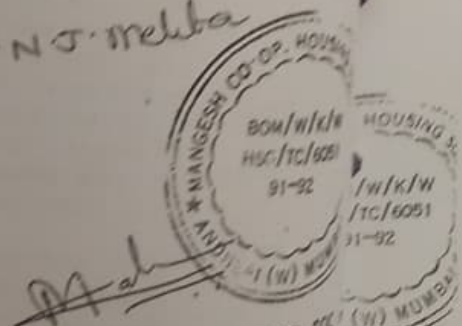 N J. Mehta
* MANGESH CO-OP. HOUSING
BOM/W/K/W
HSG/TC/6051
91-92
(W) MUM
HOUSING
/W/K/W
/TC/6051
91-92
(W) MUMBAI